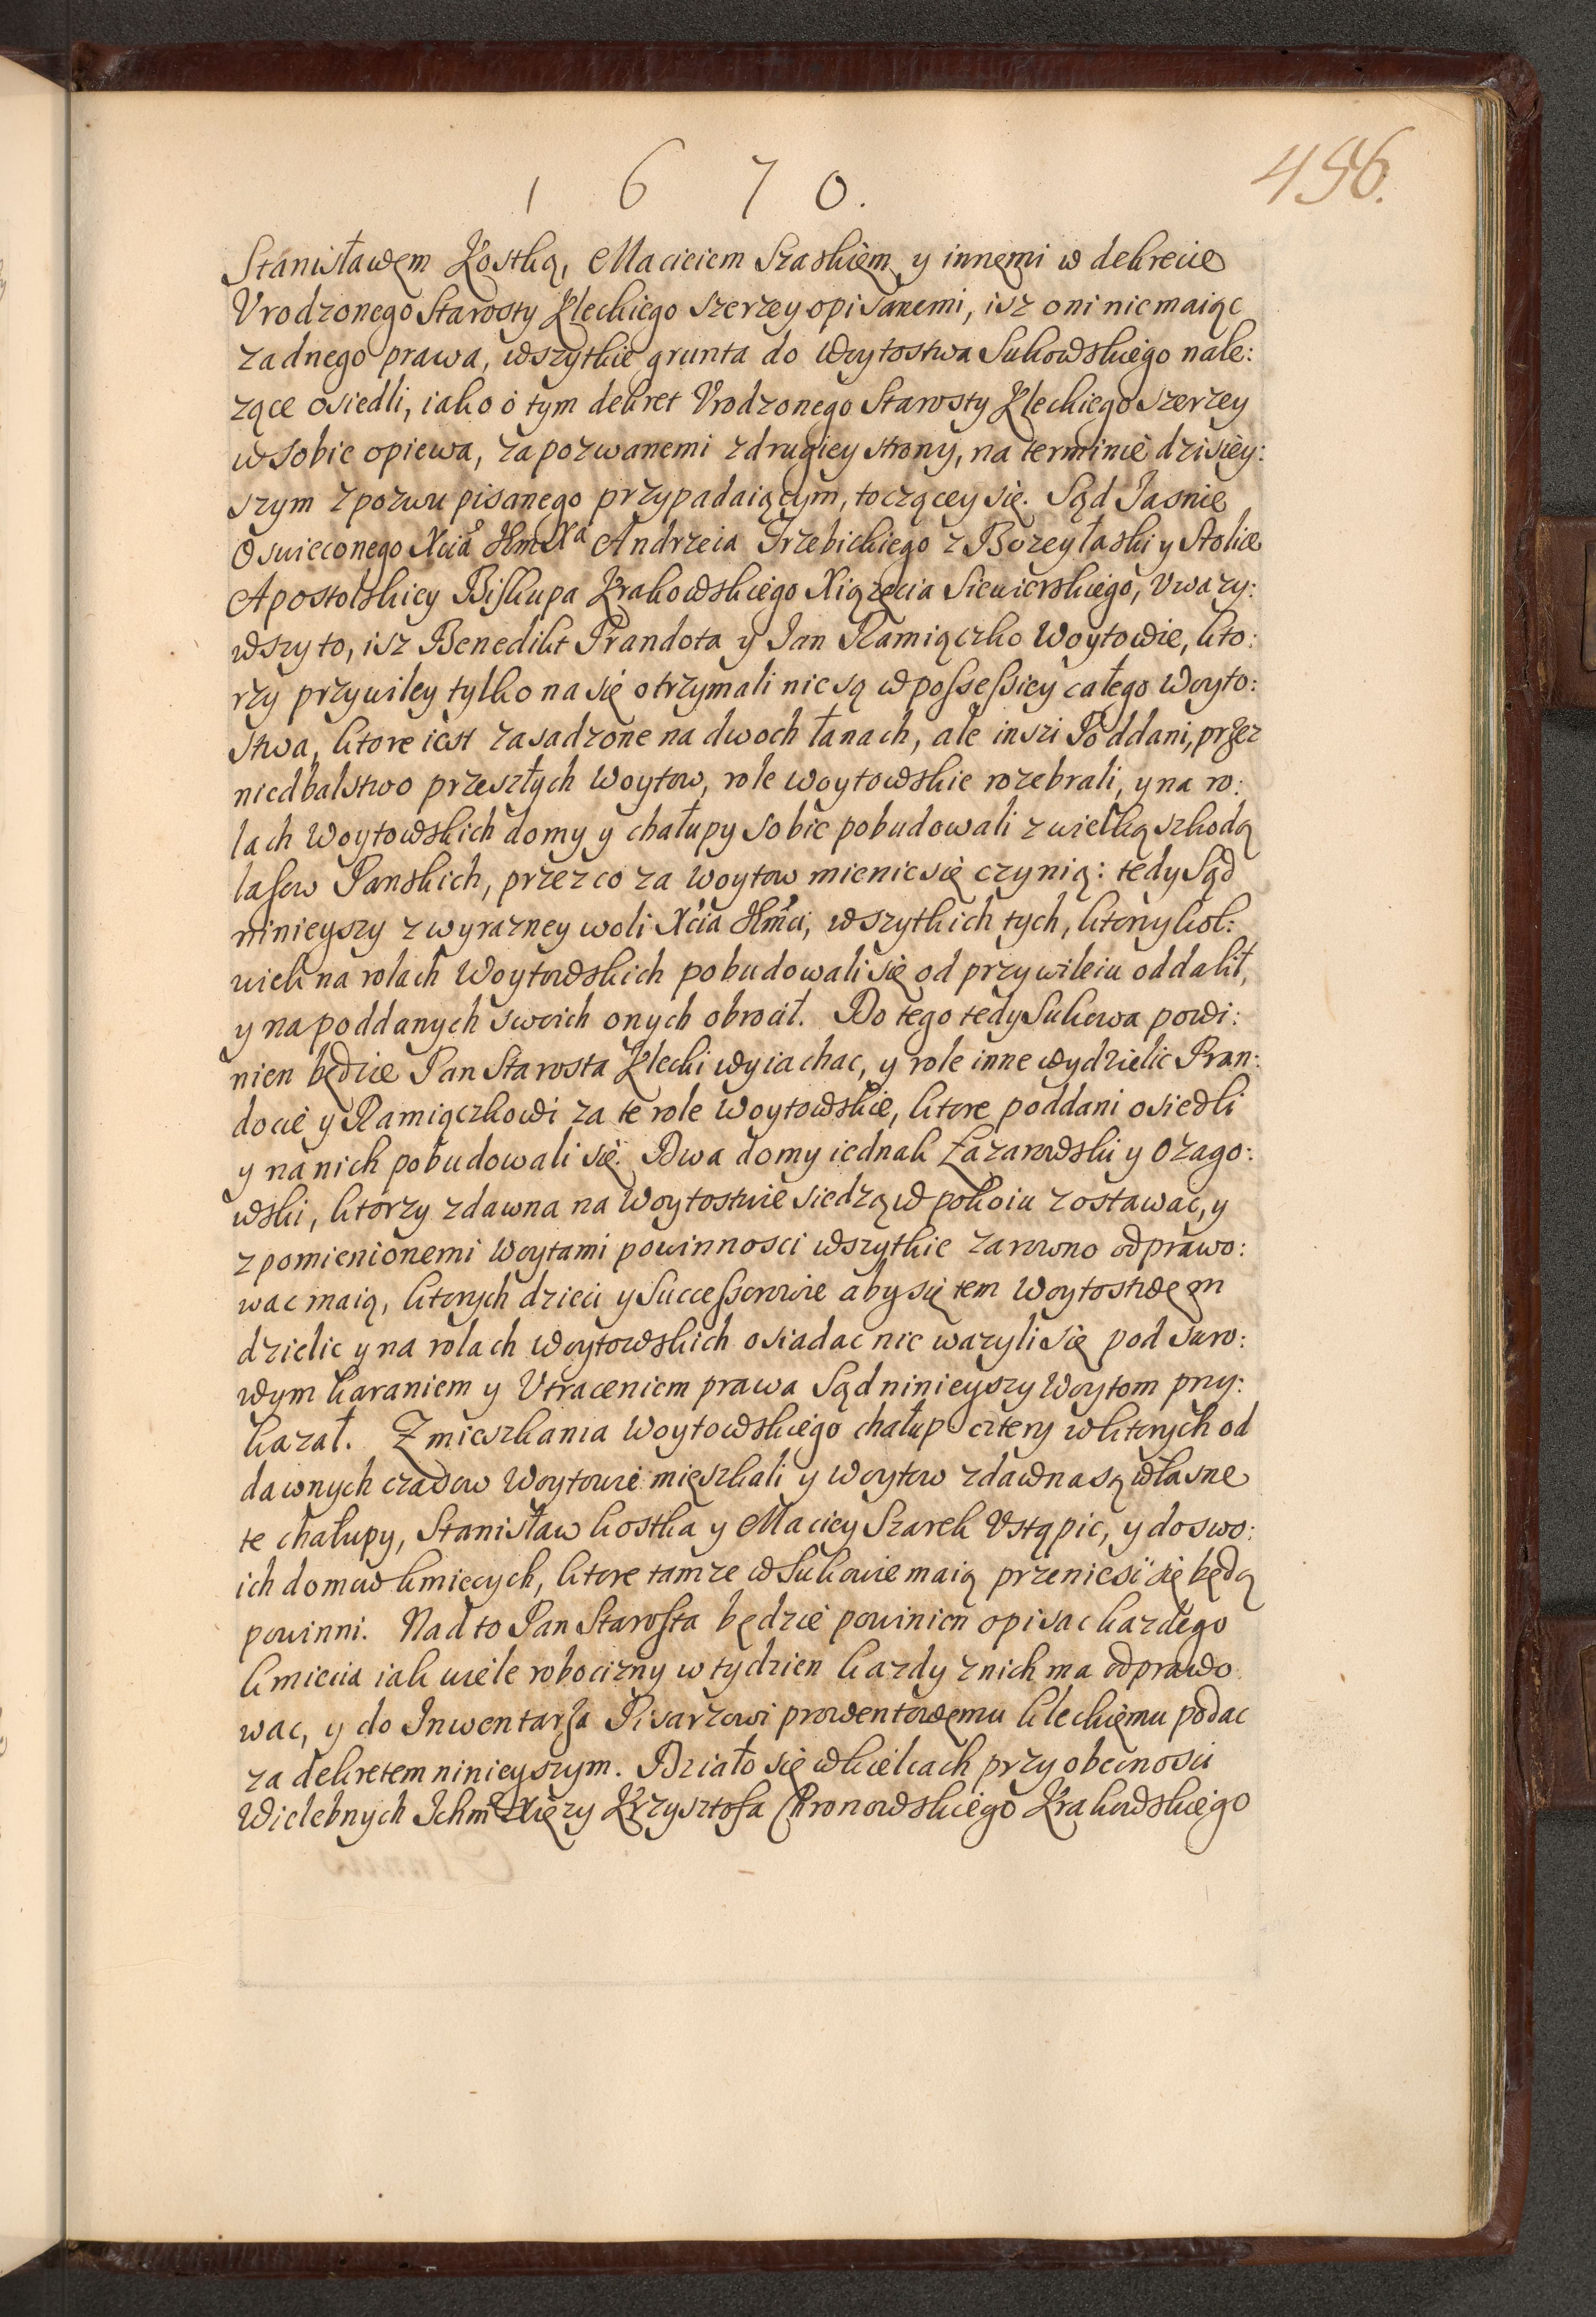 1670.
456.
Stanisławem Kostką, Macieiem Szaskiem y innemi w dekrecie
Vrodzonego Starosty Kleckiego szerzey opisanemi, isz oni nie maiąc
zadnego prawa, wszytkie grunta do Woytostwa Sukowskiego nale:
zące osiedli, iako o tym dekret Vrodzonego Starosty Kleckiego szerzey
w sobie opiewa, zapozwanemi z drugiey strony, na terminie dzisiey:
szym z pozwu pisanego przypadaiącym, toczącey się. Sąd Iasnie
Oswieconego Xcia Andrzeia Trzebickiego z Bozey łaski y Stolice
Apostolskiey Biskupa Krakowskiego Xiązęcia Siewierskiego, Vwazy:
wszy to, isz Benedikt Prandota y Ian Kamiączko Woytowie, kto:
rzy przywiley tylko na się otrzymali nie są w possessiey całego Woyto:
stwa, ktore iest zasadzone na dwoch łanach, ale inszi Poddani, przez
niedbalstwo przeszłych Woytow, role woytowskie rozebrali, y na ro:
lach Woytowskich domy y chałupy sobie pobudowali z wielką szkodą
lasow Panskich, przez co za Woytow mienic się czynią: tedy Sąd
ninieyszy z wyrazney woli Xcia Jhmci, wszytkich tych, ktorzykol:
wiek na rolach Woytowskich pobudowali się od przywileiu oddalił,
y na poddanych swoich onych obrocił. Do tego tedy Sukowa powi:
nien będzie Pan Starosta Klecki wyiachac, y role inne wydzielic Pran:
docie y Kamiączkowi za te role Woytowskie, ktore poddani osiedli
y na nich pobudowali się. Dwa domy iednak Łazarowski y Ozago:
wski, ktorzy zdawna na Woytostwie siedzą w pokoiu zostawac, y
z pomienionemi Woytami powinnosci wszytkie zarowno odprawo:
wac maią, ktorych dzieci y Successorowie aby się tem Woytostwem
dzielic y na rolach Woytowskich osiadac nie wazyli się pod suro:
wym karaniem y Vtraceniem prawa Sąd ninieyszy Woytom przy:
kazał. Z mieszkania Woytowskiego chałup cztery w ktorych od
dawnych czasow Woytowie mięszkali y Woytow zdawna są własne
te chałupy, Stanisław kostka y Maciey Szarek Vstąpic, y do swo:
ich domow kmiecych, ktore tamze w Sukowie maią przeniesi się będą
powinni. Nad to Pan Starosta będzie powinien opisac kazdego
kmiecia iak wiele robocizny w tydzien kazdy z nich ma odprawo
wac, y do Inwentarza Pisarzowi prowentowemu kleckiemu podac
za dekretem ninieyszym. Działo się w kielcach przy obecnosci
Wielebnych Ichm Xięzy Krzysztofa Chronowskiego Krakowskiego